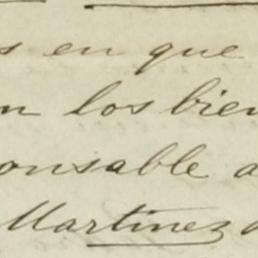 s en que
n los bien
onsable a
Martinez